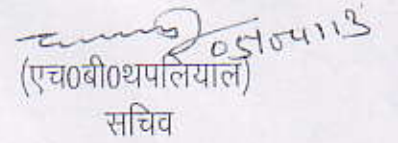 05/04/13
(एच0बी0थपलियाल)
सचिव